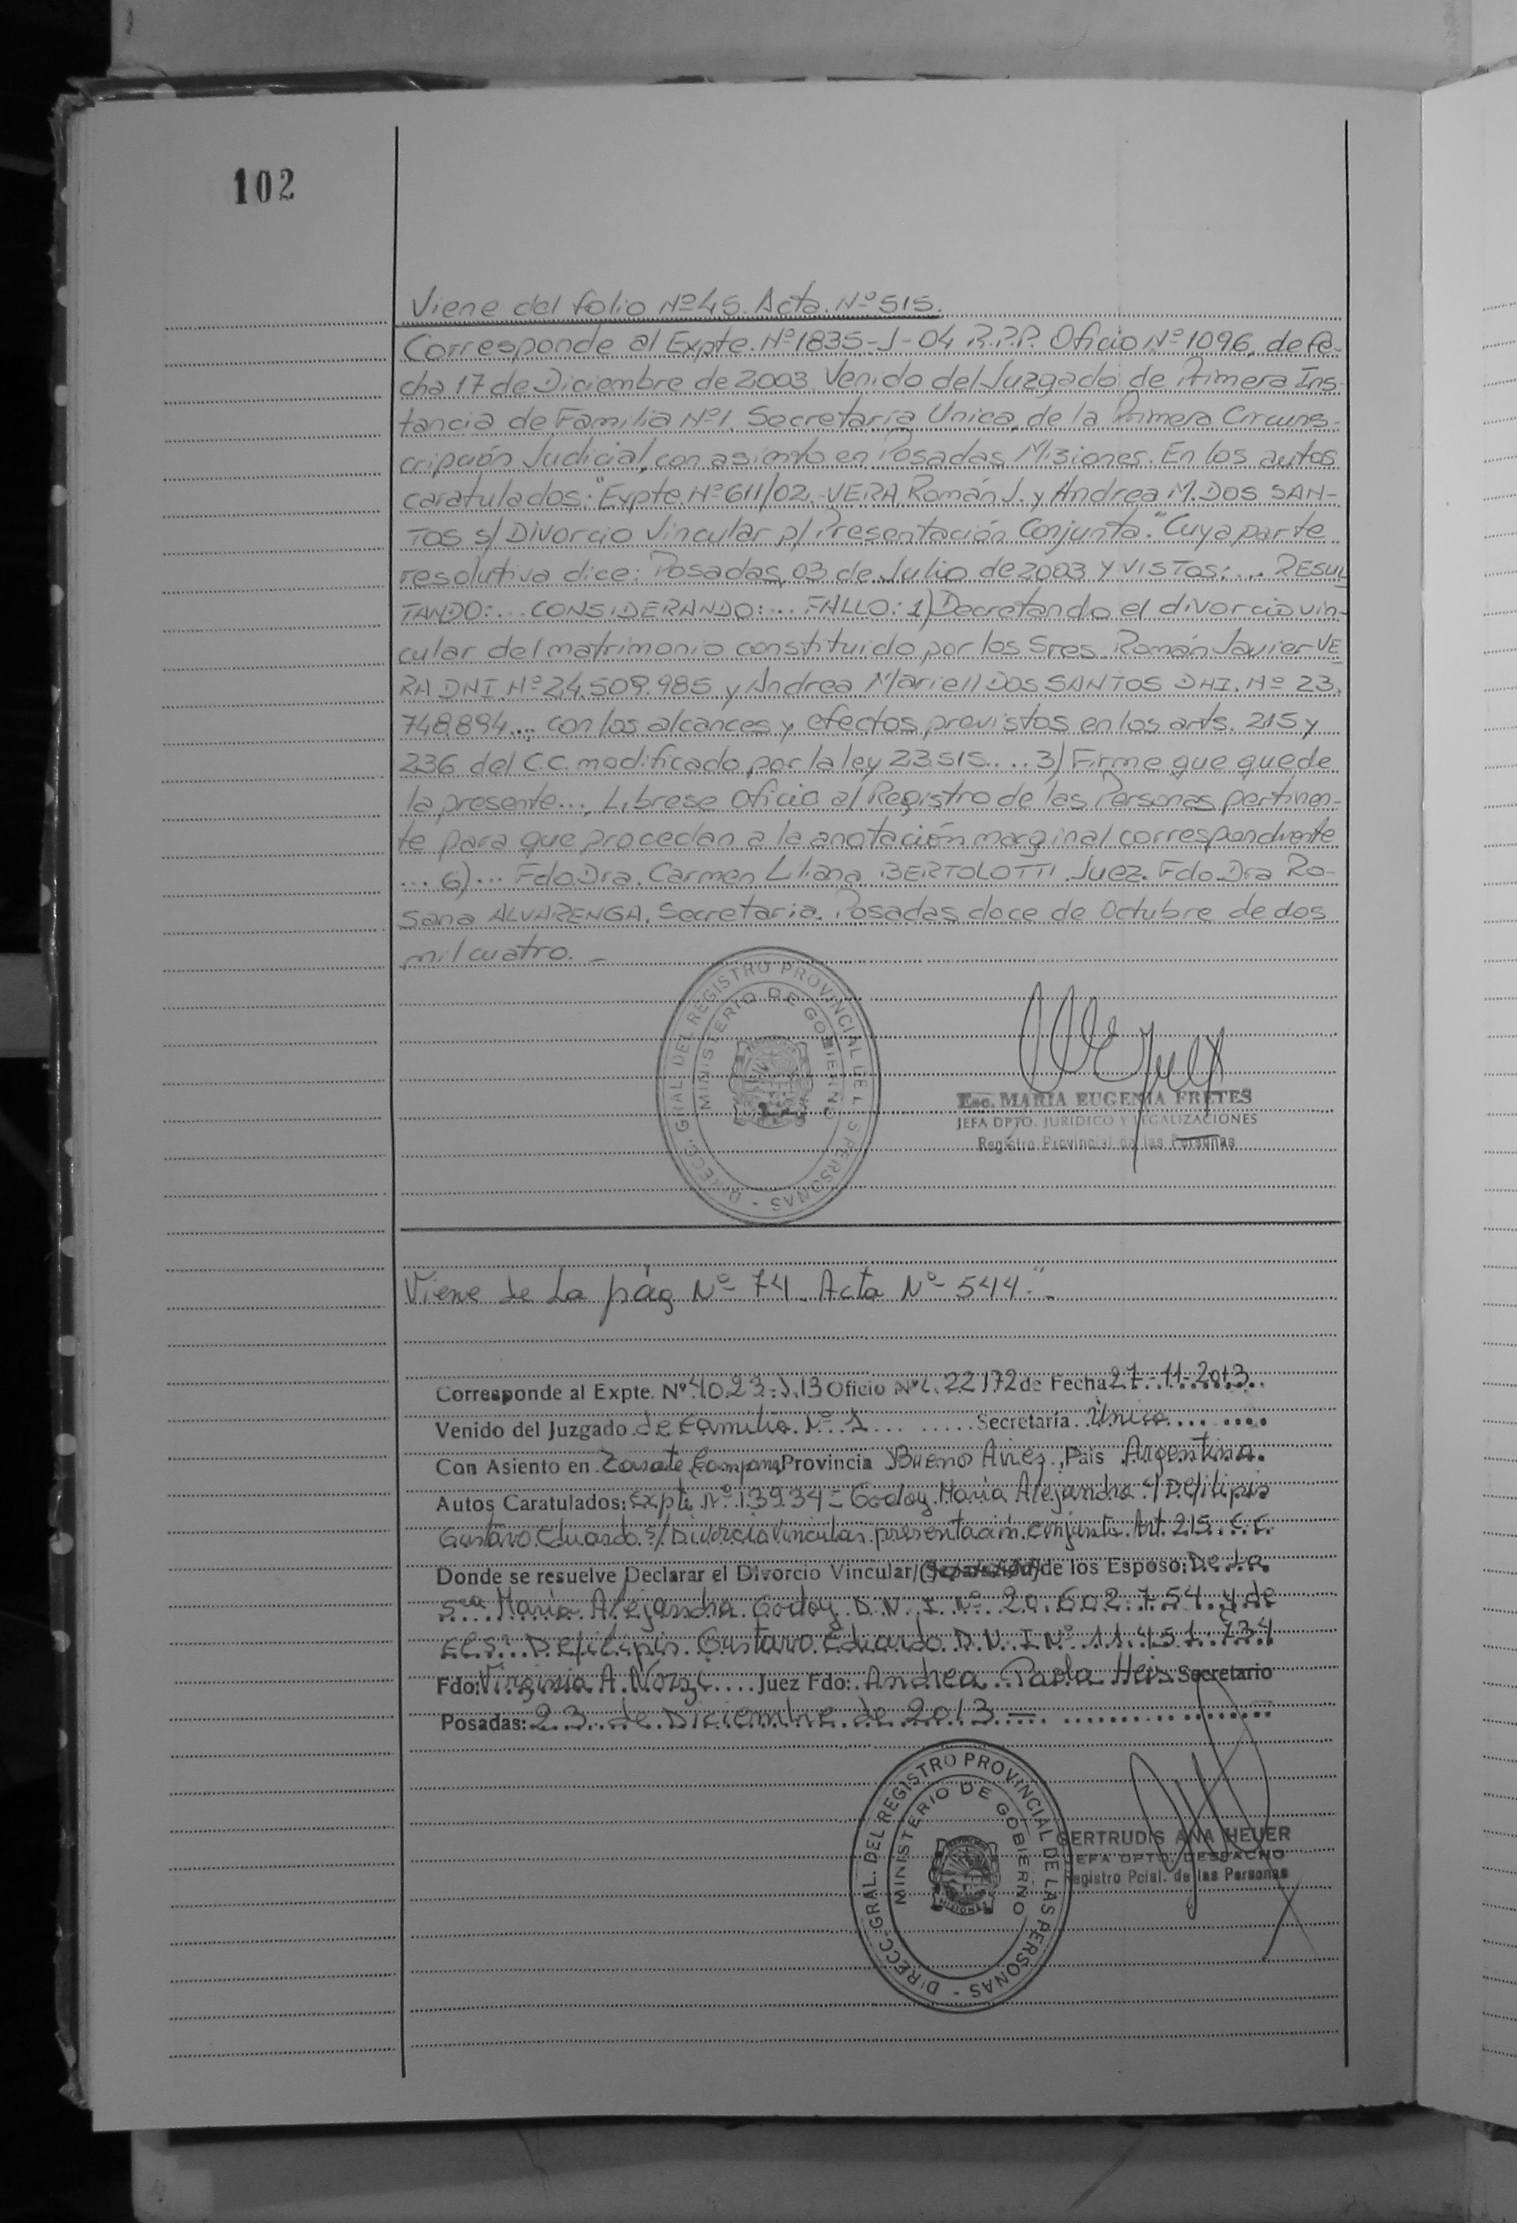 102
Viene del folio Nº45. Acta. Nº515.
Corresponde al Expte. Nº1835-J-04 R.P.P. Oficio Nº1096, de fe-
cha 17 de Diciembre de 2003. Venido del Juzgado de Primera Ins-
tancia de Familia Nº1. Secretaría Unica, de la Primera Circuns-
cripción Judicial, con asiento en Posadas Misiones. En los autos
caratulados: "Expte. Nº611/02.-VERA, Román J. y Andrea M. DOS SAN-
TOS s/ Divorcio Vincular p/ Presentación Conjunta." Cuya parte
resolutiva dice: Posadas, 03 de Julio de 2003 Y VISTOS:... RESUL
TANDO:... CONSIDERANDO:... FALLO: 1) Decretando el divorcio vin-
cular del matrimonio constituido por los Sres. Román Javier VE
RA DNI. Nº24.509.985 y Andrea Mariell DOS SANTOS DNI. Nº 23.
748.894..., con los alcances y efectos previstos en los arts. 215 y
236 del C.C. modificado por la ley 23.515.... 3) Firme que quede
la presente..., Librese Oficio al Registro de las Personas pertinen-
te para que procedan a la anotación marginal correspondiente
... 6)... Fdo. Dra. Carmen Liliana BERTOLOTTI. Juez. Fdo. Dra Ro-
sana ALVARENGA. Secretaria. Posadas, doce de Octubre de dos
mil cuatro. -
DIRECC. GRAL. DEL REGISTRO PROVINCIAL DE L S PERSONAS -
MINISTERIO DE GOBIERNO
Esc. MARIA EUGENIA FRETES
JEFA DPTO. JURIDICO Y LEGALIZACIONES
Registro Provincial de las Personas
Viene de La pág Nº 74. Acta Nº 544."-
Corresponde al Expte. Nº 4023-J-13 Oficio Nº 22172 de Fecha 27-11-2013
Venido del Juzgado de Familia Nº 1 Secretaría Única
Con Asiento en Zarate Campana Provincia Buenos Aires, País Argentina.
Autos Caratulados: Expte Nº 13934 = Godoy María Alejandra c/ Defilipis
Gustavo Eduardo s/ Divorcio Vincular presentación conjunta. Art. 215. C.C.
Donde se resuelve Declarar el Divorcio Vincular/(Separación)de los Esposo: De La
Sra María Alejandra Godoy D.N.I. Nº 20.602.754 y de
El Sr Defilipis Gustavo Eduardo D.N.I Nº 11.451.734
Fdo: Virginia A. Juez Fdo: Andrea Paola Heis Secretario
Posadas: 23 de Diciembre de 2013 =
DIRECC. GRAL. DEL REGISTRO PROVINCIAL DE LAS PERSONAS -
MINISTERIO DE GOBIERNO
MISIONES
GERTRUDIS ANA HEUER
JEFA DPTO. DESPACHO
Registro Pcial. de las Personas